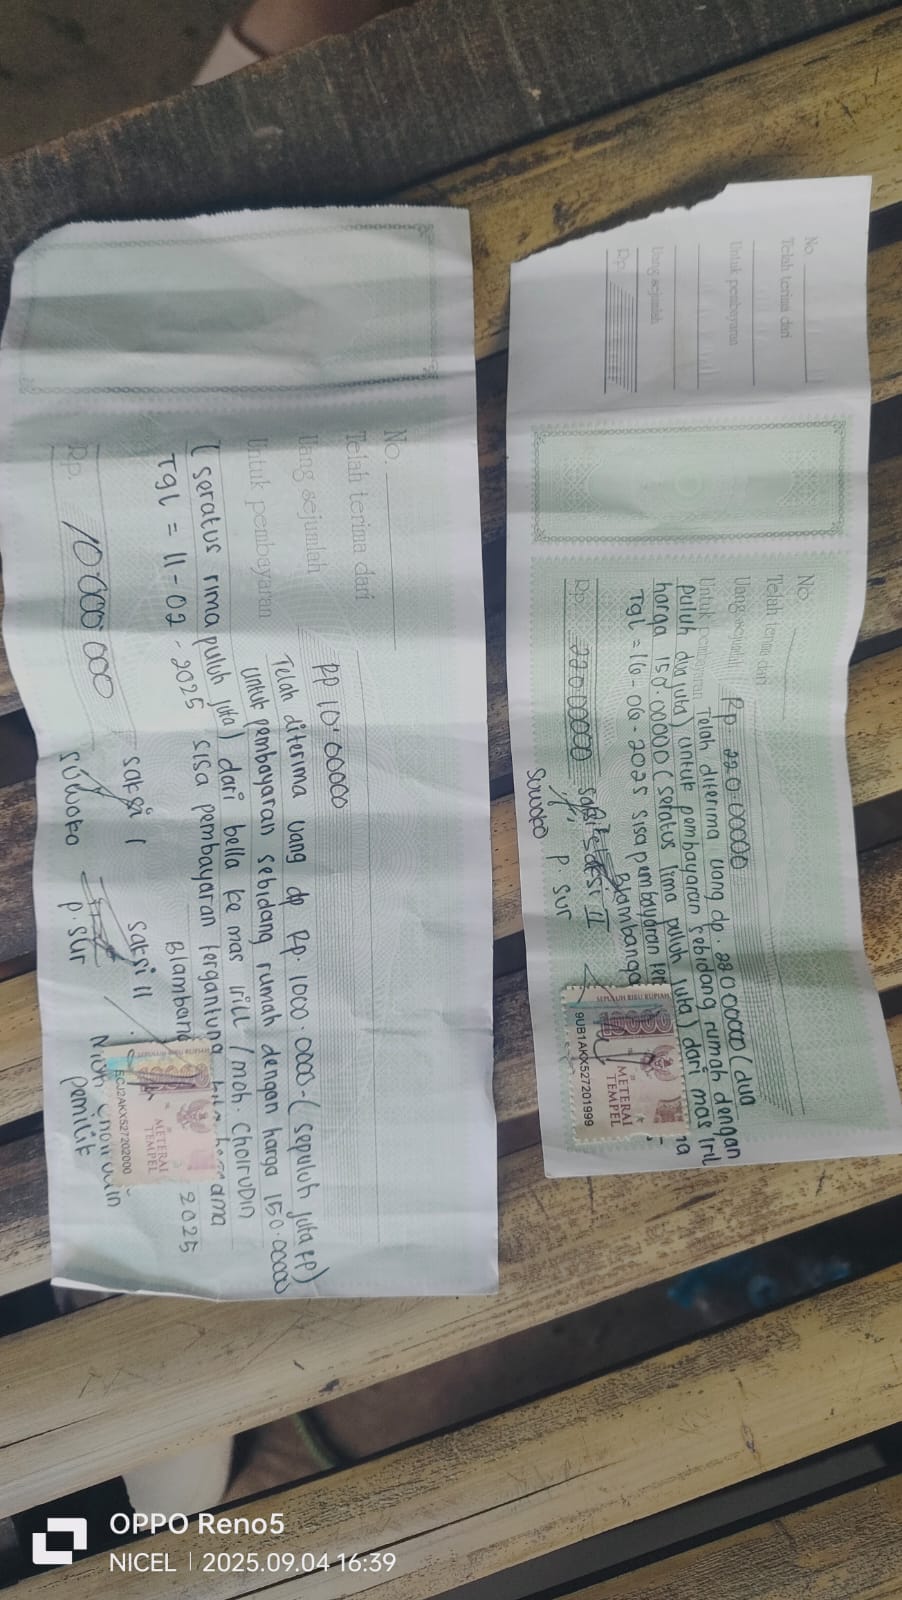 No.
Telah terima dari
Uang sejumlah
Untuk pembayaran
Rp 10.00000
Telah diterima uang dp Rp. 1000.0000-(sepuluh juta rp)
untuk pembayaran sebidang rumah dengan harga 150.00000
(seratus rima puluh juta) dari bella ke mas irill / moh. choirudin
Tgl = 11-02-2025 sisa pembayaran tergantung
Blambang 2025
Rp. 10000'000
saksi I saksi II
suwoko p. sur
pemilik
SEPULUH RIBU RUPIAH
METERAI
TEMPEL
2AKX527202000
No.
Telah terima dari
Untuk pembayaran
Uang sejumlah
Rp.
No.
Telah terima dari
Uang sejumlah
Untuk pembayaran
Rp. 220.00000
Telah diterima uang dp. 220.00000 (dua
puluh dua juta) untuk pembayaran sebidang rumah dengan
harga 150.00000 (seratus lima puluh juta) dari mas iril
Tgl = 16-06-2025 sisa pembayaran
Blambanga
Rp. 220.00000
suwoko p. sur
SEPULUH RIBU RUPIAH
METERAI
TEMPEL
9UB1AKX527201999
OPPO Reno5
NICEL | 2025.09.04 16:39